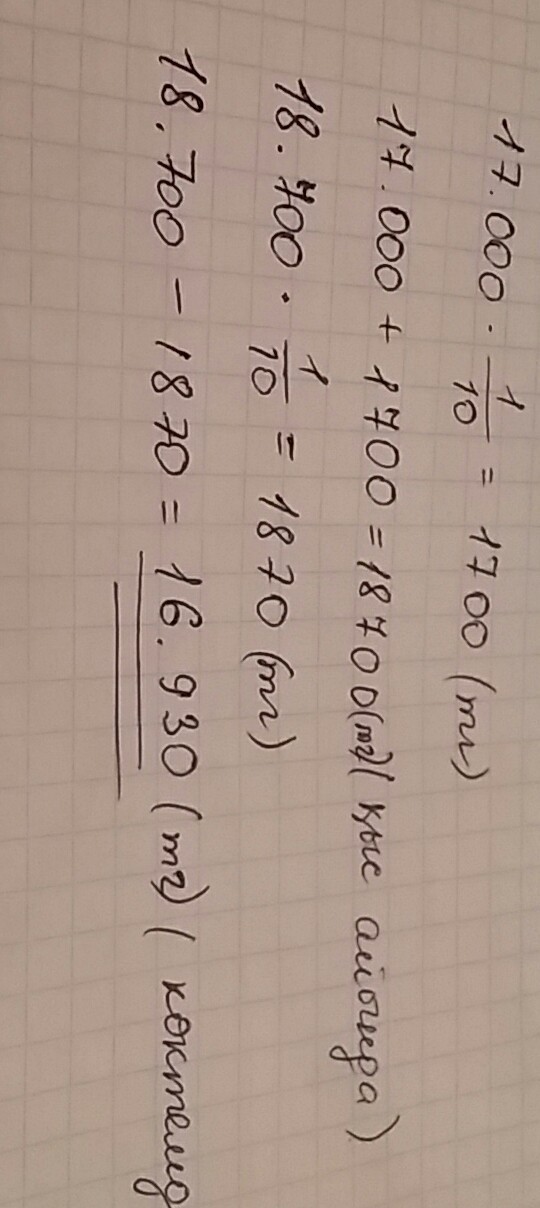 17.000 · 1/10 = 1700 (тг)
17.000 + 1700 = 18700 (тг) ( қыс айында)
18.700 · 1/10 = 1870 (тг)
18.700 - 1870 = 16.930 (тг) (